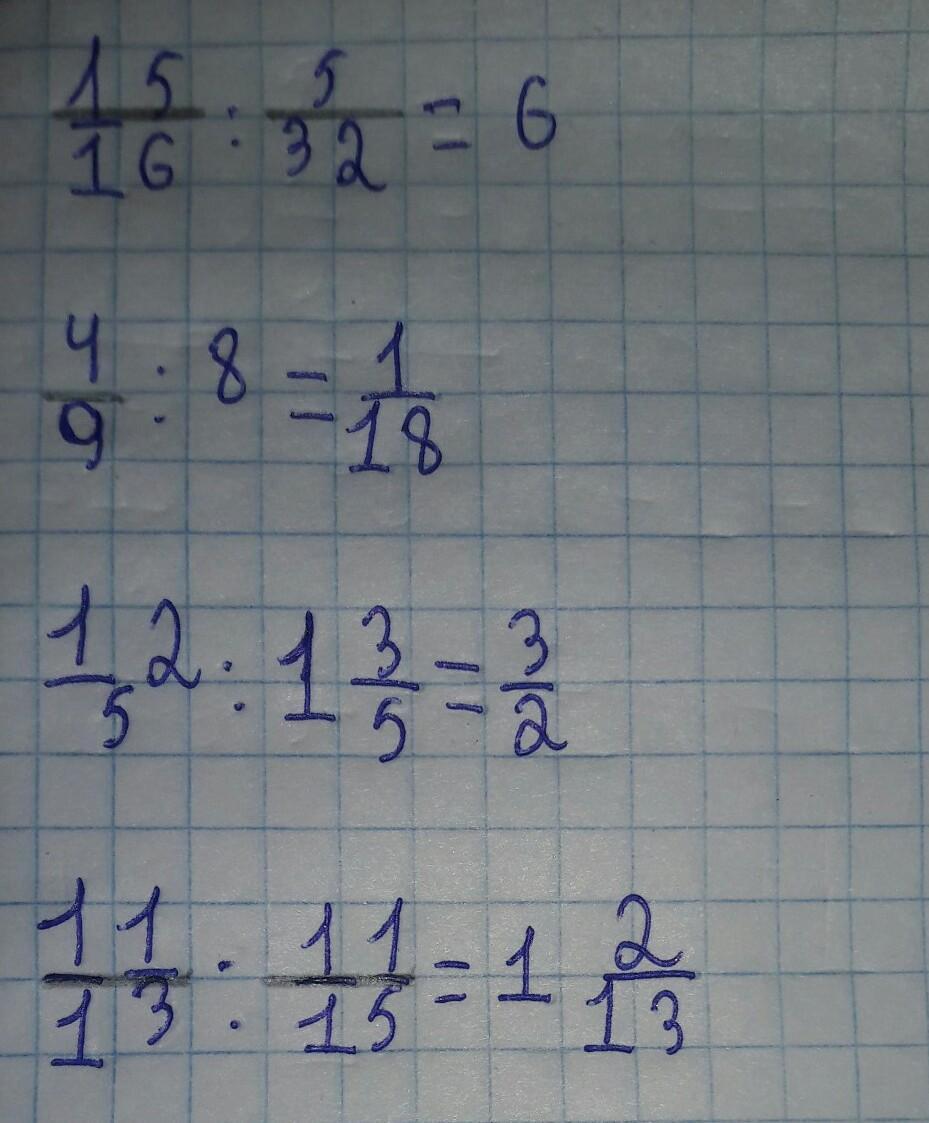 15/16 : 5/32 = 6
4/9 : 8 = 1/18
12/5 : 1 3/5 = 3/2
11/13 : 11/15 = 1 2/13